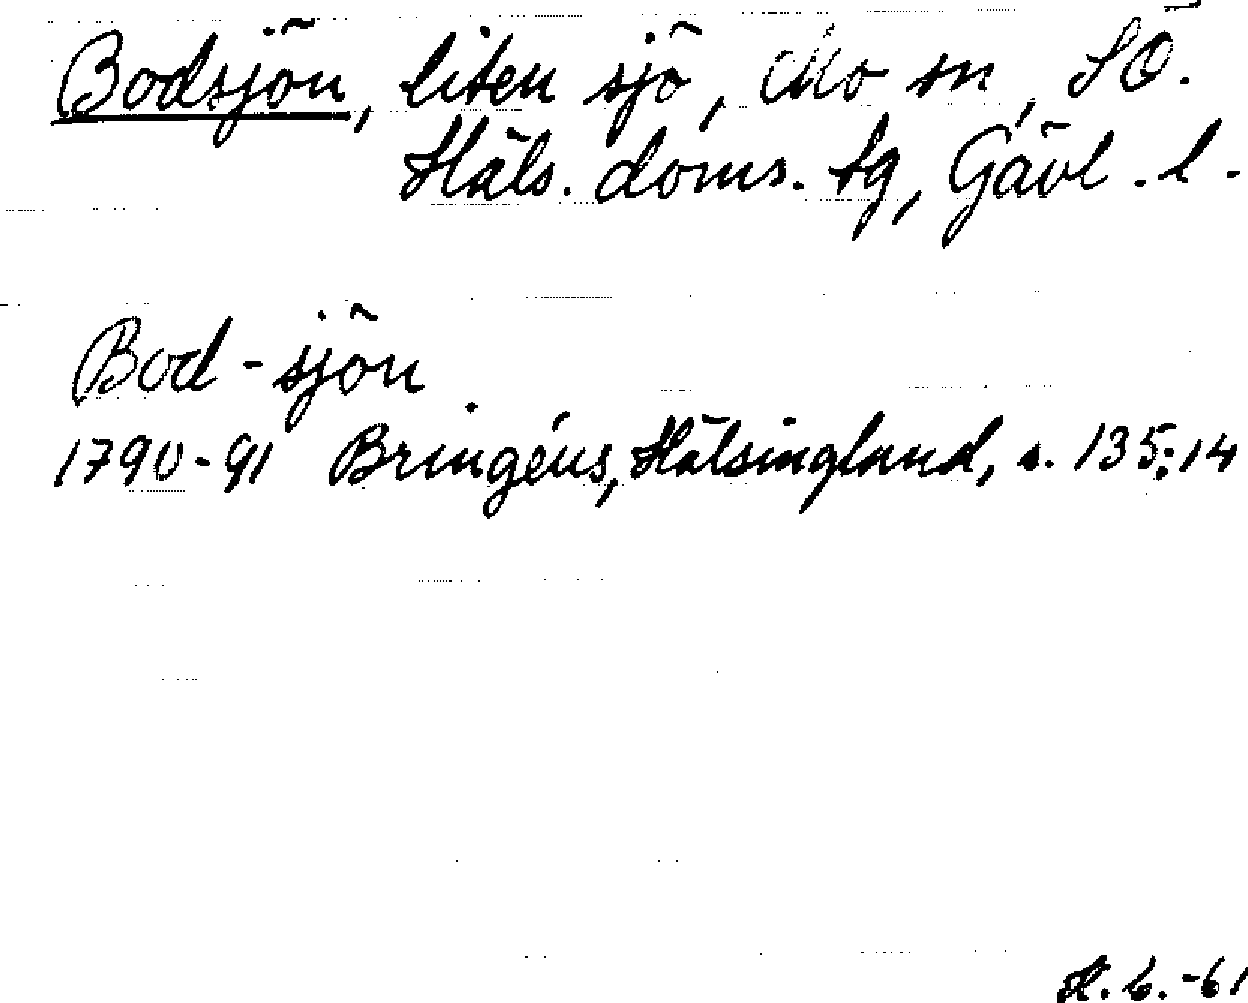 Bodsjön, liten sjö, Mo sn, SÖ.
Häls. doms. tg, Gävl. l.
Bod-sjön
1790-91 Bringéus, Hälsingland, s. 135:14
-61